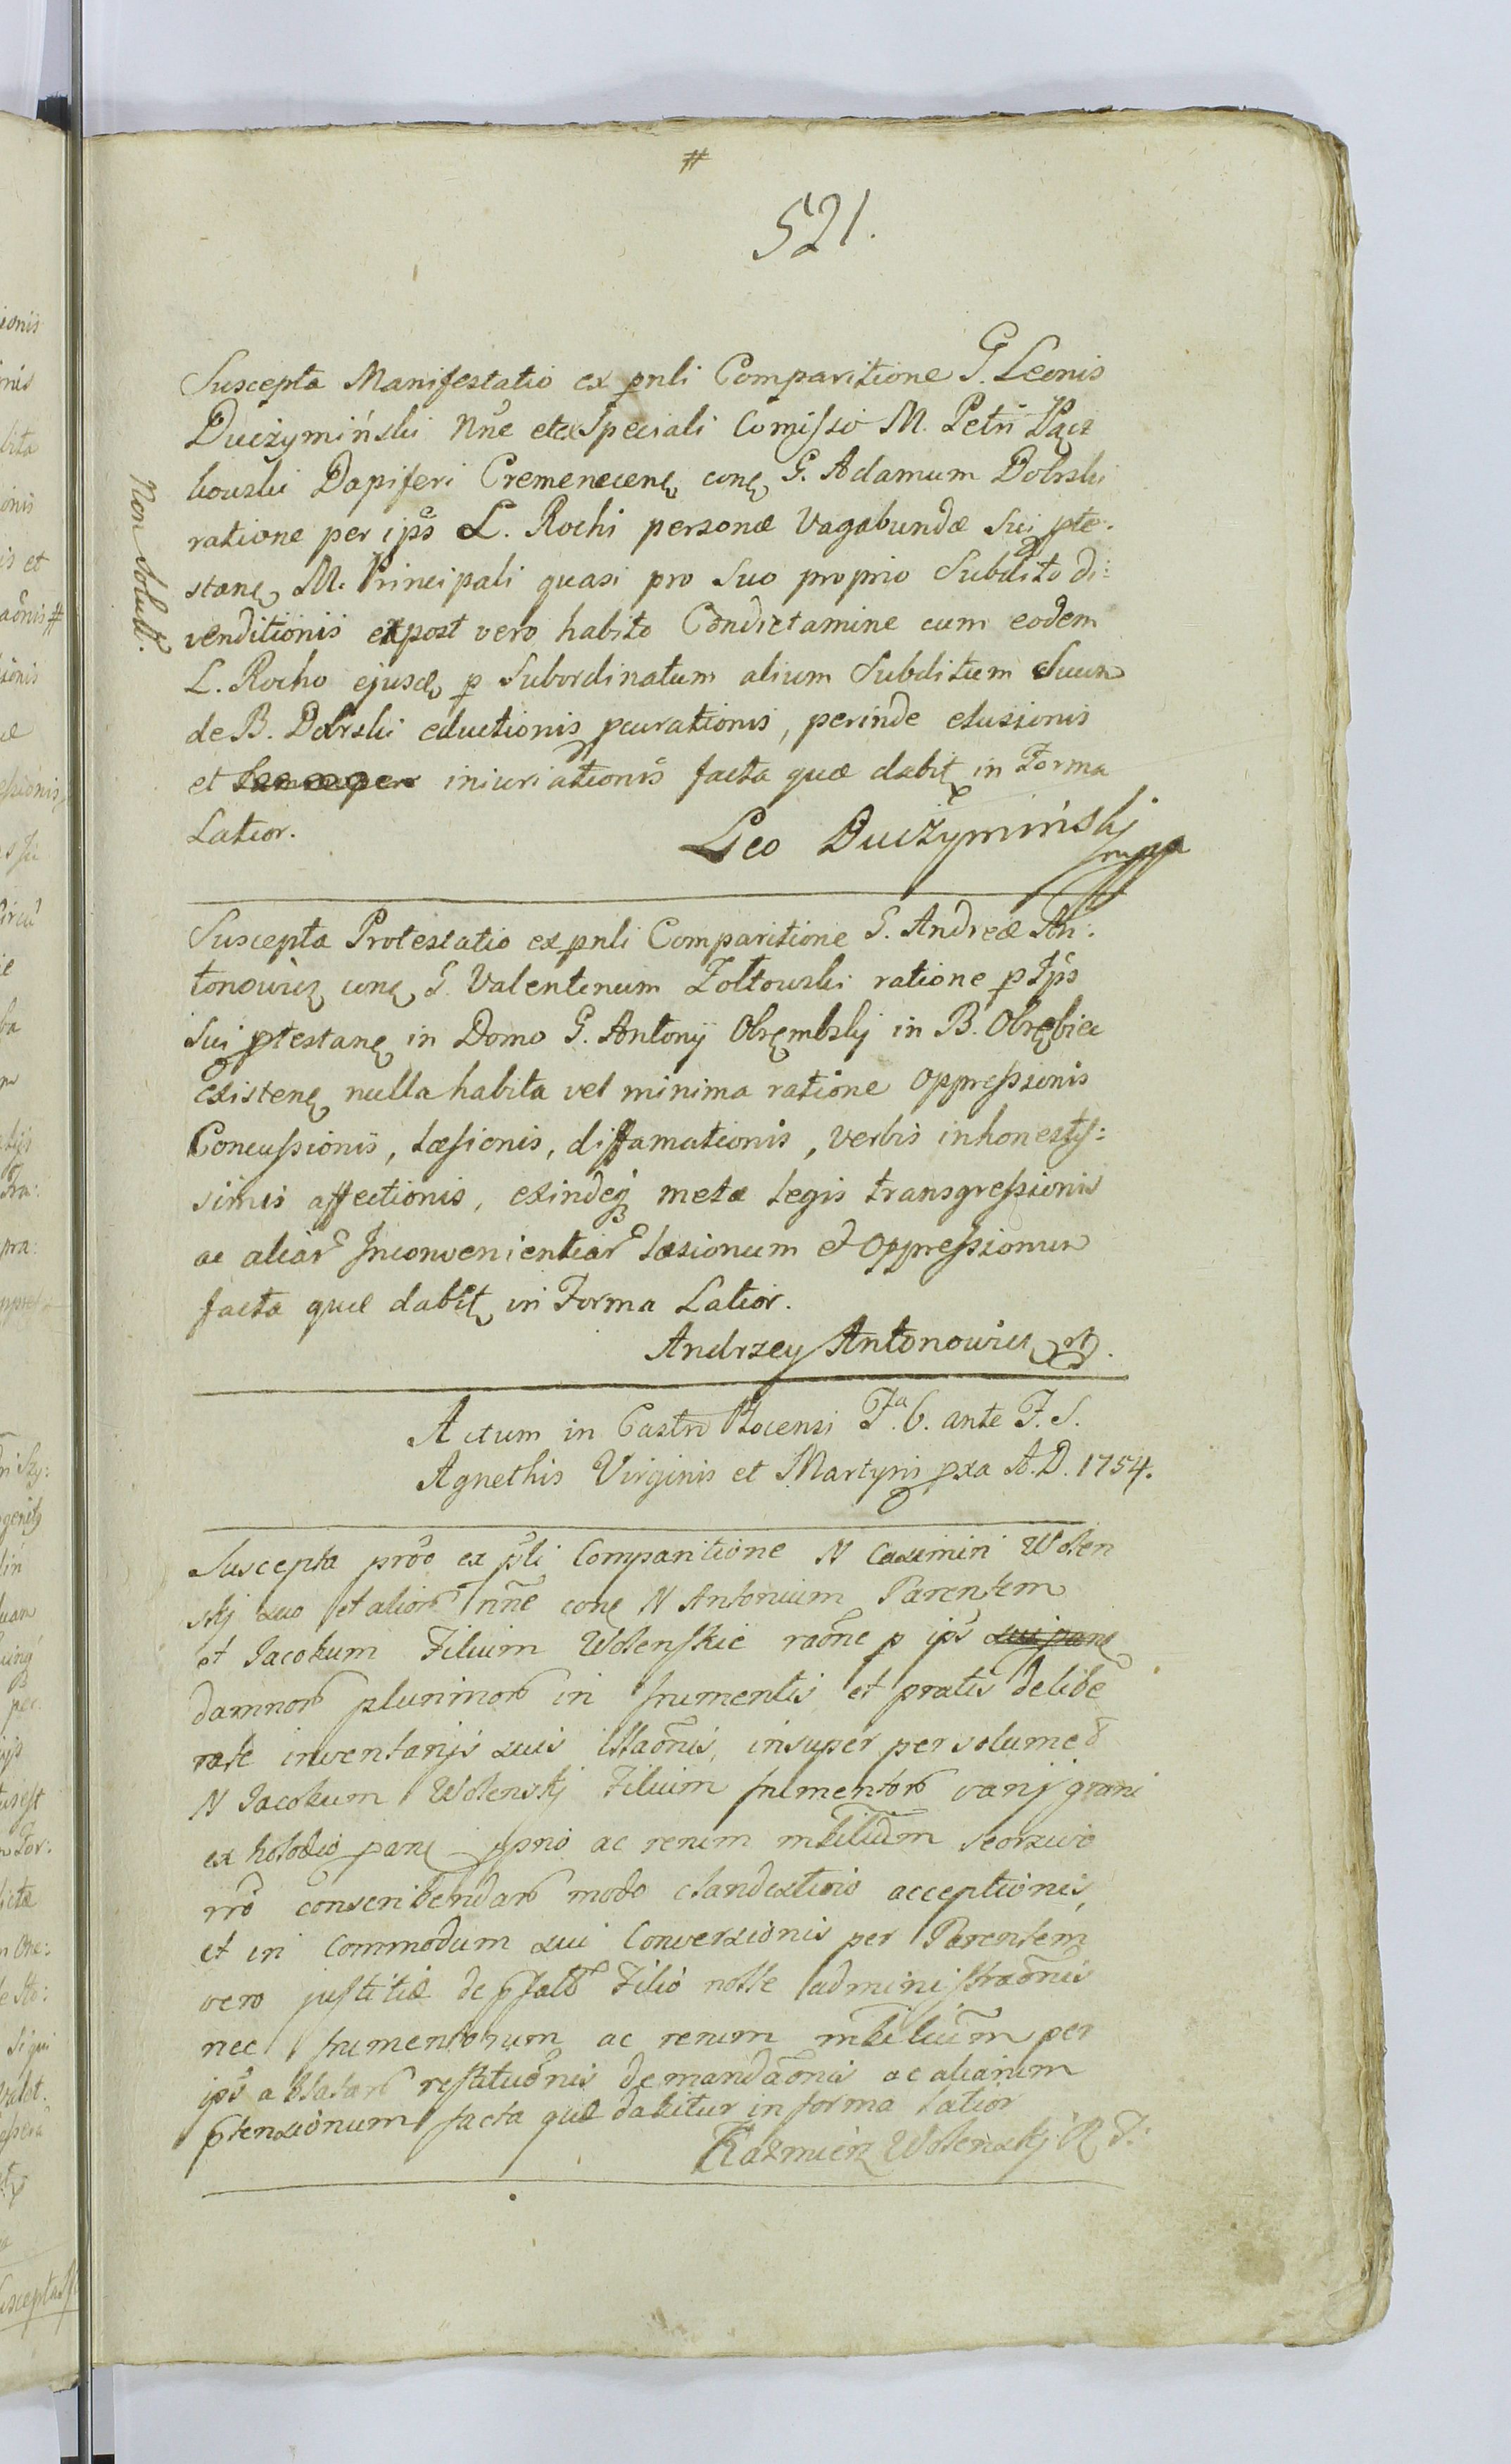 #
521.
Suscepta Manifestatio ex pnli Comparitione G. Leonis
Duczymiński Nne et ex Speciali Comisso M. Petri Pącz
kowski Dapiferi Cremenecen, con, G. Adamum Dobrski
ratione per ips L. Rochi personæ Vagabundæ Sui pte-
stan, M. Principali quasi pro Suo proprio Subdito di:
venditionis expost vero habito Condictamine cum eodem
L. Rocho ejusd, p Subordinatum alium Subditum Suum
de B. Dobrski eductionis pcurationis, perinde elusionis
et iniuriationis facta quæ dabit, in Forma
Latior.
Leo Duczÿminskj
mppa
Non Solvit.
Suscepta Protestatio ex pnli Comparitione G. Andreæ An:
tonowicz con, G. Valentinum Zoltowski ratione p Ips
Sui ptestan, in Domo G. Antonÿ Obręmbskj in B. Obrębiec
Existen, nulla habita vel minima ratione oppressionis
Concussionis, læsionis, diffamationis, verbis inhonestis:
simis affectionis, exindeq, metæ legis transgressionis
ac aliar Inconvenientiar læsionum et Oppressionum
facta quæ dabit, in Forma Latior.
Andrzey Antonowicz
Actum in Castro Plocensi F.a 6. ante F. S.
Agnethis Virginis et Martyris pxa A. D. 1754.
Suscepta pro ex pli Comparitione N Casimiri Wolen
skj suo et alior nne con, N Antonium Parentem
et Jacobum Filium Wolenskie raone p ips sui pane
damnor plurimor in frumentis et pratis delibe
rate inventarijs suis illaonis, insuper per solum
N Jacobum Wolenskj Filium frumentor varij grani
ex horodio pane pprio ac rerum mbilium seorsivo
rro conscribendar modo clandestino acceptionis,
et in Commodum sui Conversionis per Parentem
vero justitiæ de pfato Filio nolle administraonis
nec frumentorum ac rerum mbilium per
ips ablatar restituonis demandaonis ac aliarum
ptensionum facta quæ dabitur in forma latior
Kazmierz Wolenskj